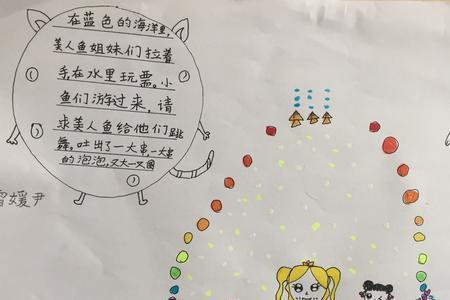 在蓝色的海洋里,
美人鱼姐妹们拉着
手在水里玩耍。小
鱼们游过来,请
求美人鱼给他们跳
舞。吐出了一大串,一大串
的泡泡,又大一又圆
媛尹